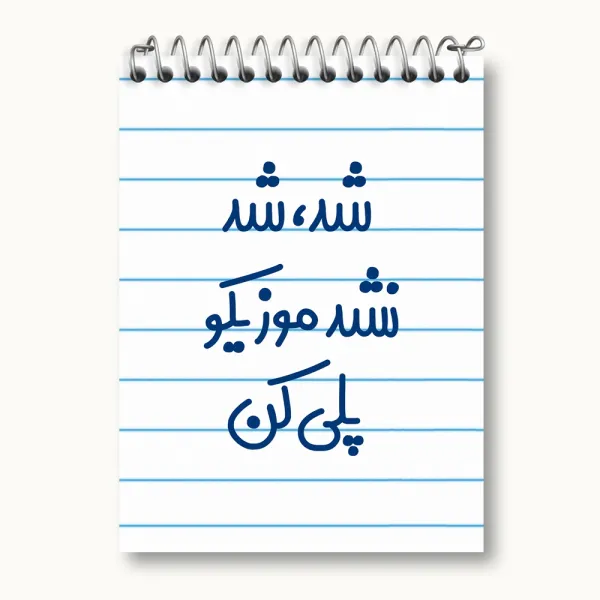 شد، شد
نشد موزیکو
پلی کن